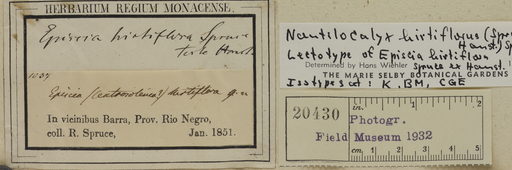 HERBARIUM REGIUM MONACENSE,
Episcia hirtiflora Spruce
teste Hanst.
Episcia (Centrosolenia?) hirtiflora
In vicinibus Barra, Prov. Rio Negro,
coll. R. Spruce, Jan. 1851.
Nautilocalyx hirtiflorus (Spruce
Hanst.) Sp
Lectotype of Episcia hirtiflora
Determined by Hans Wiehler Spruce ex Hanst.
THE MARIE SELBY BOTANICAL GARDENS
Isotypes at: K, BM, CGE
20430
in. 1 2
Photogr.
Field Museum 1932
cm. 1 2 3 4 5